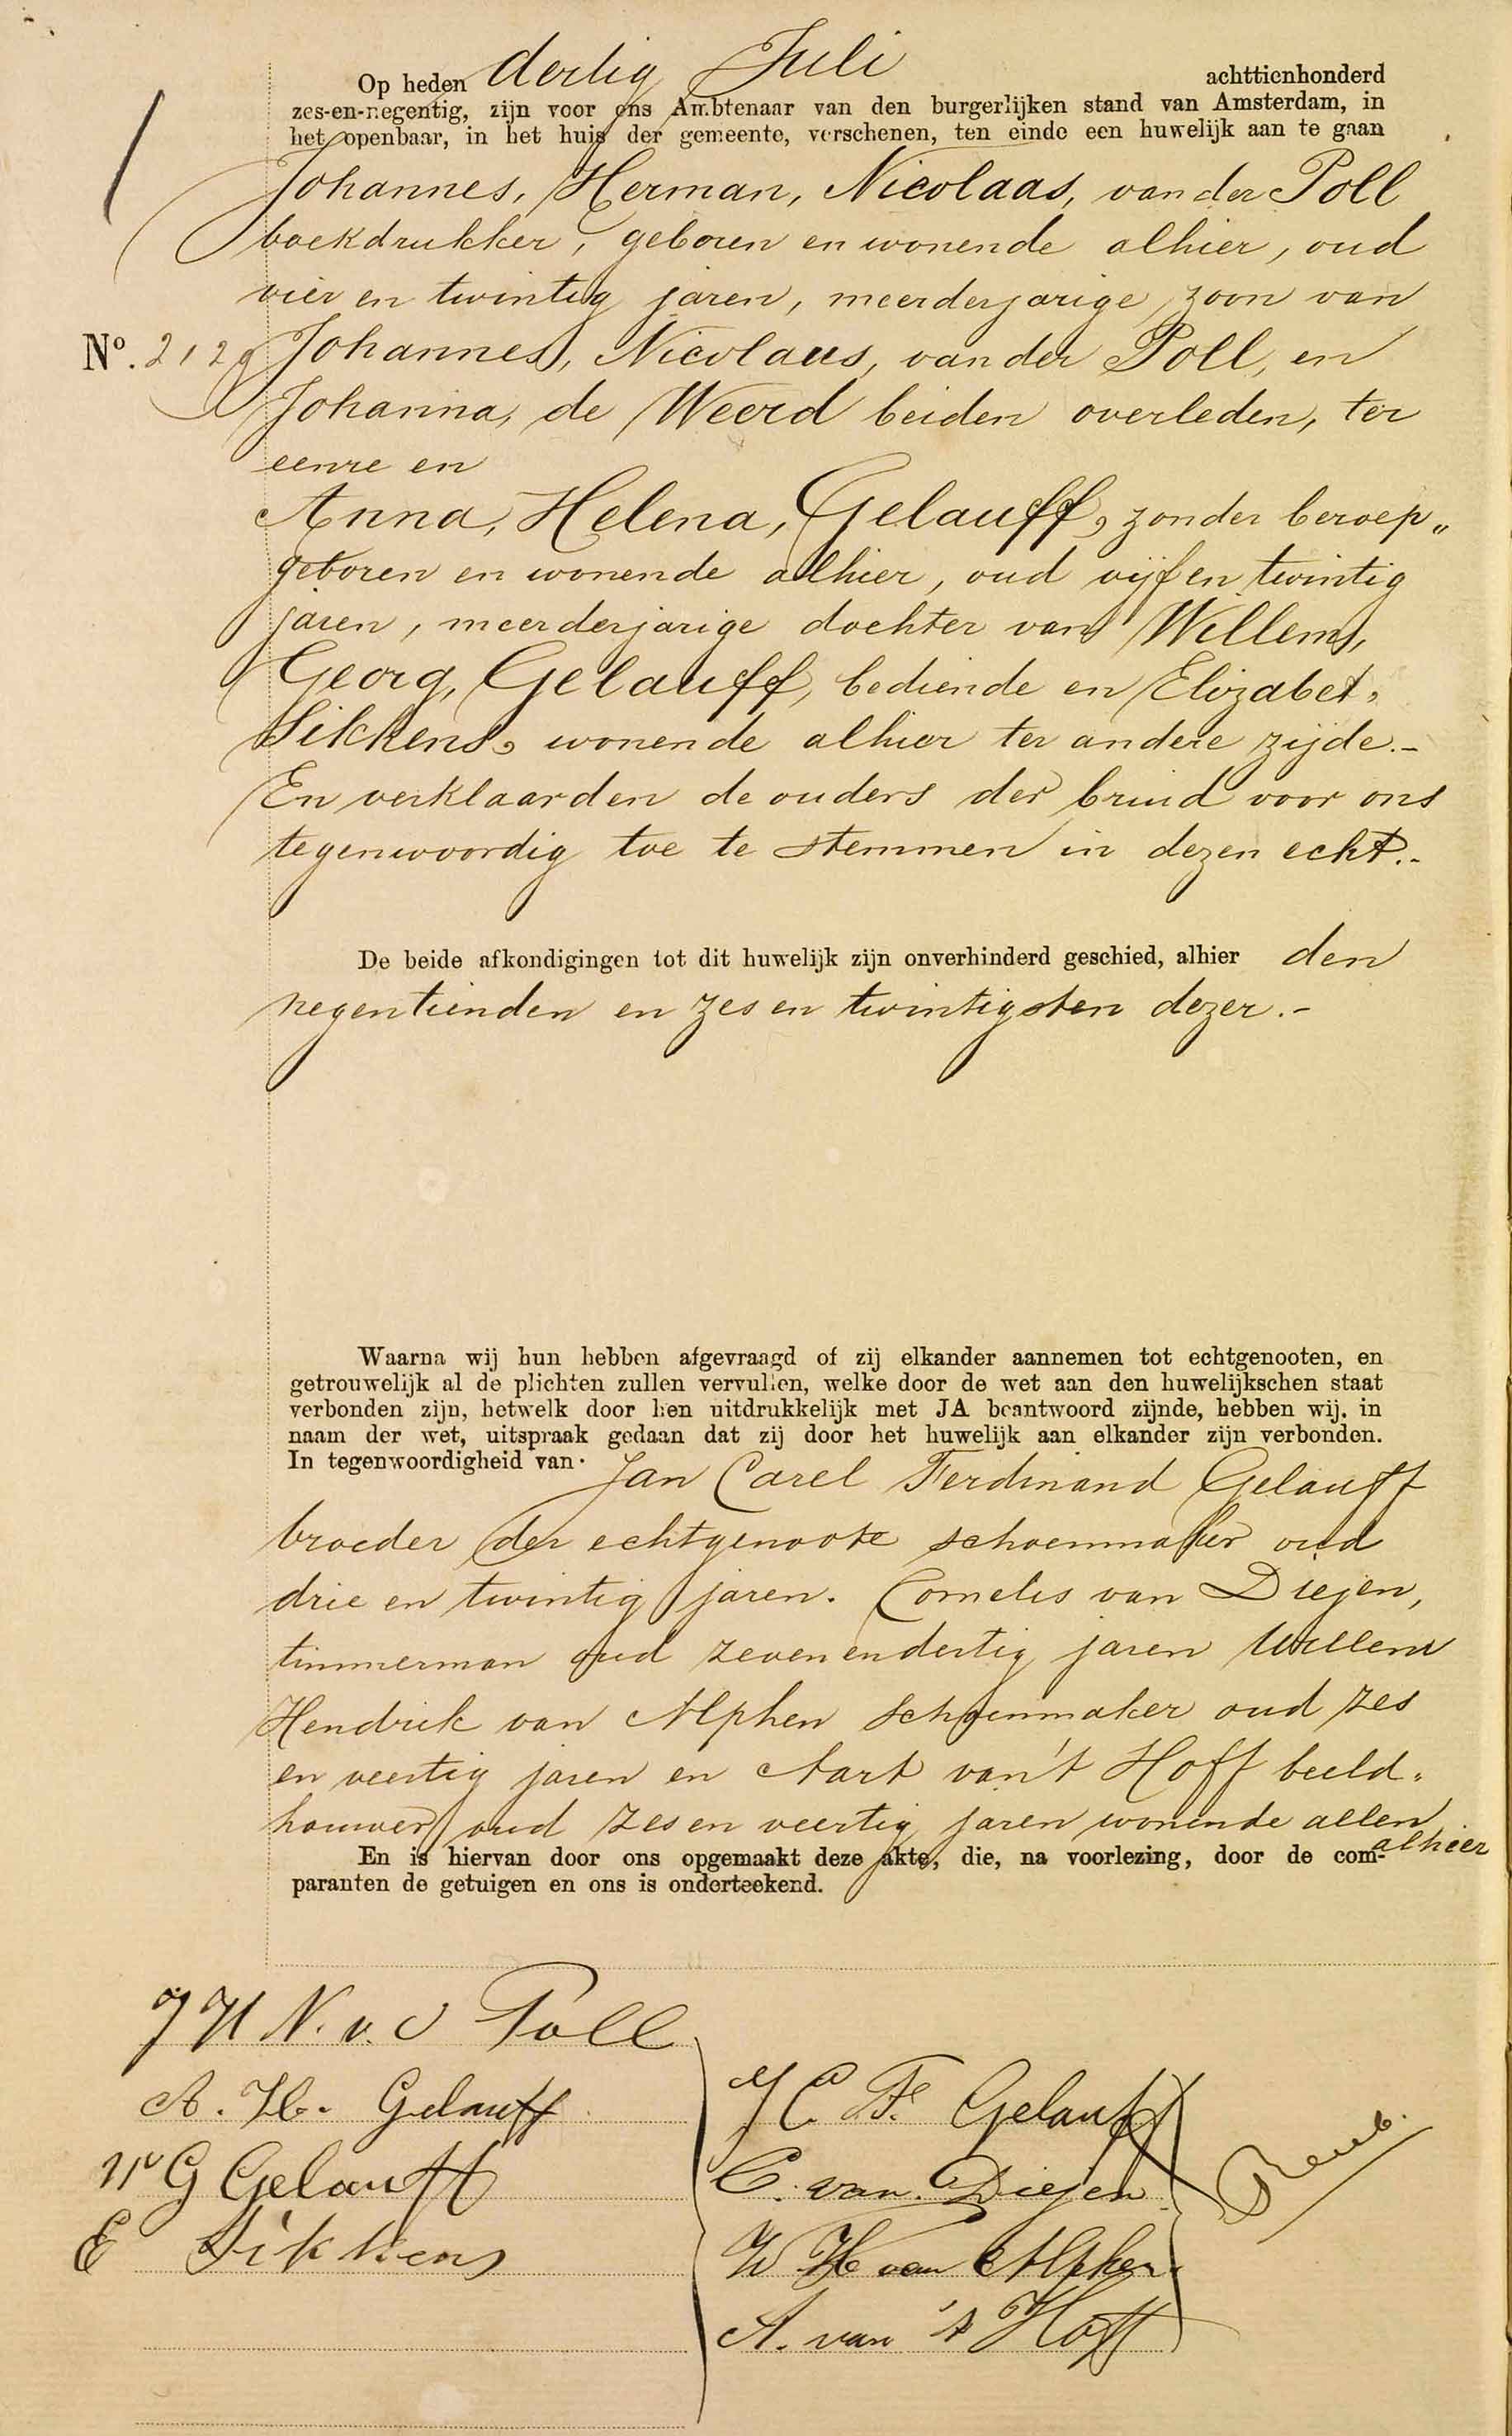 Op heden dertig Juli achttienhonderd
zes-en-negentig, zijn voor ons Ambtenaar van den burgerlijken stand van Amsterdam, in
het openbaar, in het huis der gemeente, verschenen, ten einde een huwelijk aan te gaan
Johannes, Herman, Nicolaas, van der Poll
boekdrukker, geboren en wonende alhier, oud
vier en twintig jaren, meerderjarige zoon van
No. 2129 Johannes, Nicolaus, van der Poll, en
Johanna, de Weerd beiden overleden, ter
eenre en
Anna, Helena, Gelauff, zonder beroep„
geboren en wonende alhier, oud vijf en twintig
jaren, meerderjarige dochter van Willem,
Georg, Gelauff, bediende en Elizabet,
Sikkens, wonende alhier ter andere zijde.-
En verklaarden de ouders der bruid voor ons
tegenwoordig toe te stemmen in dezen echt.-
De beide afkondigingen tot dit huwelijk zijn onverhinderd geschied, alhier den
negentienden en zes en twintigsten dezer.-
Waarna wij hun hebben afgevraagd of zij elkander aannemen tot echtgenooten, en
getrouwelijk al de plichten zullen vervullen, welke door de wet aan den huwelijkschen staat
verbonden zijn, hetwelk door hen uitdrukkelijk met JA beantwoord zijnde, hebben wij, in
naam der wet, uitspraak gedaan dat zij door het huwelijk aan elkander zijn verbonden.
In tegenwoordigheid van Jan Carel Ferdinand Gelauff
broeder der echtgenoote schoenmaker oud
drie en twintig jaren. Cornelis van Diejen,
timmerman oud zevenendertig jaren Willem
Hendrik van Alphen schoenmaker oud zes
en veertig jaren en Aart van't Hoff beeld-
houwer oud zes en veertig jaren wonende allen
alhier
En is hiervan door ons opgemaakt deze akte, die, na voorlezing, door de com-
paranten de getuigen en ons is onderteekend.
J H N. v. d Poll
A. H. Gelauff
W G Gelauff
E Sikkens
J C. F. Gelauff
C. van Diejen
W H van Alphen
A. van 't Hoff